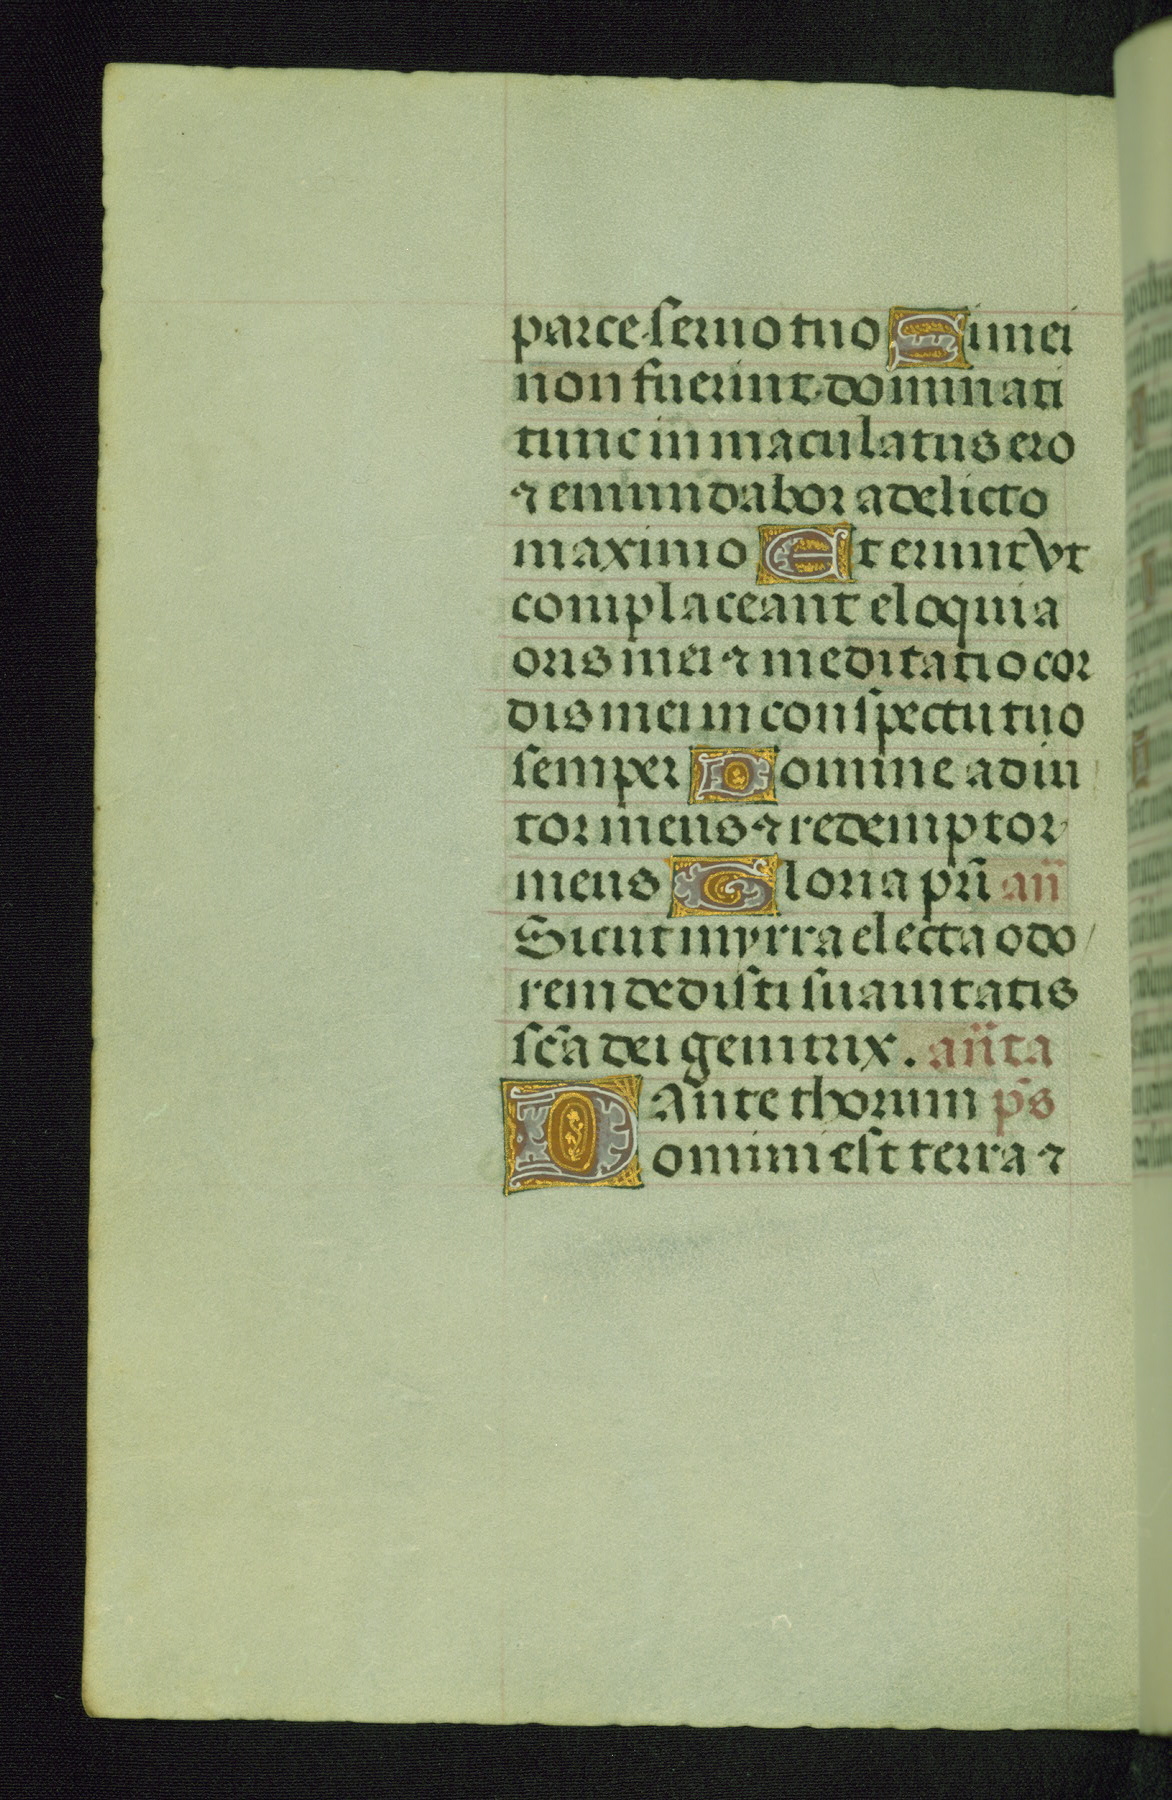 parce seruo tuo Si mei
non fuerint dominati
tunc inmaculatus ero
⁊ emundabor a delicto
maximo Et erunt vt
complaceant eloquia
oris mei ⁊ meditatio cor
dis mei in conspectu tuo
semper Domine adiu
tor meus ⁊ redemptor
meus Gloria pr̄i an̄
Sicut myrra electa odo
rem dedisti suauitatis
sc̄a dei genitrix. an̄ta
Ante thorum ps̄
Domini est terra ⁊